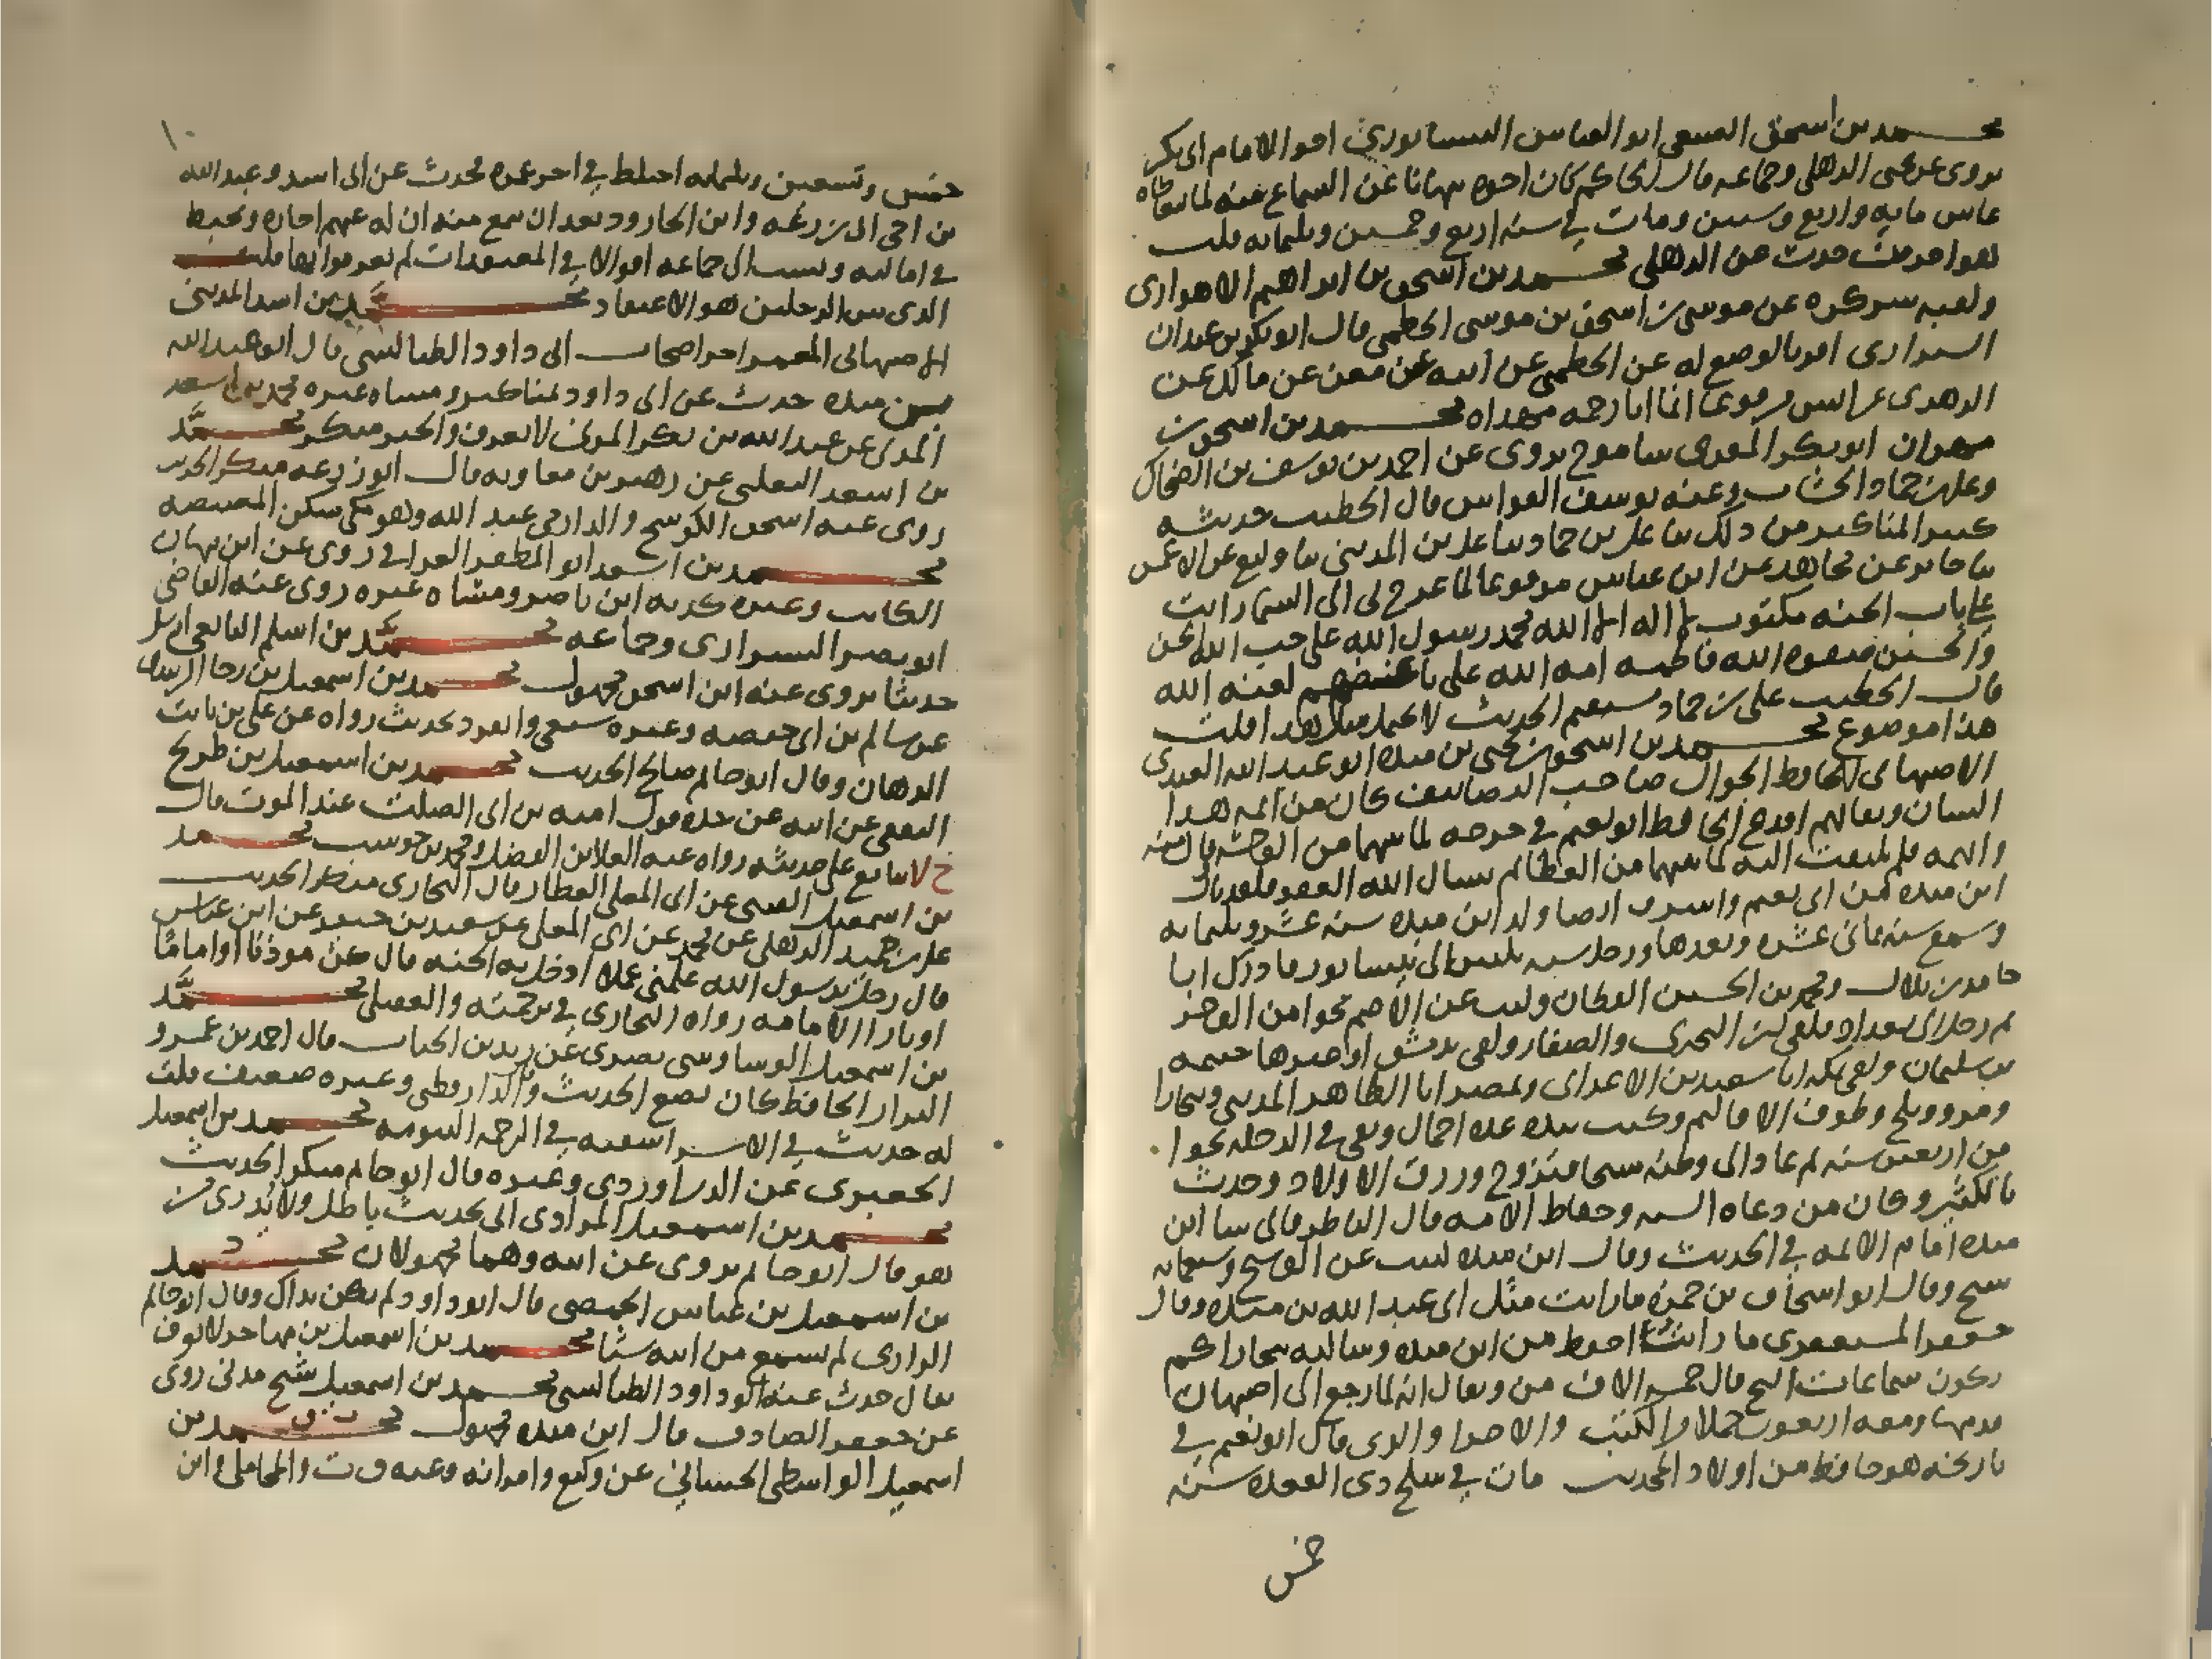 محمد بن اسحق الصبغي ابو العباس النيسابوري اخو الامام ابى بكر
يروى عن يحيى الذهلى وجماعه قال الحاكم كان اخوه ينهانا عن السماع منه لما يتعاطاه
عاش مايه واربع وسنين ومات في سنه اربع وخمسين وثلثمايه قلت
هو اخر من حدث عن الذهلى محمد بن اسحق بن ابراهيم الاهوازى
ولقبه سركره عن موسى بن اسحق بن موسى الخطمى قال ابو بكر بن عبدان
الشيرازى اقر بالوضع له عن الخطمى عن ابيه عن معن عن مالك عن
الزهرى عن انس مرفوعا انما انا رحمه مهداه محمد بن اسحق بن
مهران ابو بكر المقرى شاموخ يروى عن احمد بن يوسف بن الضحاك
وعلى بن حماد الخشاب وعنه يوسف القواس قال الخطيب حديثه
كثير المناكير من ذلك ثنا على بن حماد ثنا على بن المدينى ثنا وكيع عن الاعمش
ثنا جابر عن مجاهد عن ابن عباس مرفوعا لما عرج بى الى السما رايت
على باب الجنه مكتوب لا اله الا الله محمد رسول الله على حب الله الحسن
والحسين صفوه الله فاطمه امه الله على باغضهم لعنه الله
قال الخطيب على بن حماد مستقيم الحديث لا يحتمل مثل هذا قلت
هذا موضوع محمد بن اسحق بن يحيى بن منده ابو عبد الله العبدى
الاصبهانى الحافظ الجوال صاحب التصانيف كان من ائمه هذا
الشان وثقاتهم اقذع الحافظ ابو نعيم في جرحه لما بينهما من الوحشه ونال منه
واتهمه فلم يلتفت اليه لما بينهما من العظائم نسال الله العفو فلقد نال
ابن منده من ابى نعيم واسرف ايضا ولد ابن منده سنه عشر وثلثمايه
وسمع سنه ثمانى عشره وبعدها ورحل سنه ثلثين الى نيسابور فادرك ابا
حامد بن بلال ومحمد بن الحسين القطان وكتب عن الاصم نحوا من الف جز
ثم رحل الى بغداد فلقى ابن البخترى والصفار ولقى بدمشق او غيرها خيثمه
بن سليمان ولقى بمكه ابا سعيد بن الاعرابى وبمصر ابا الطاهر المدينى وببخارا
ومرو وبلخ وطوف الاقاليم وكتب بيده عده احمال وبقى في الرحله نحوا
من اربعين سنه ثم عاد الى وطنه شيخا فتزوج ورزق الاولاد وحدث
بالكثير وكان من دعاه السنه وحفاظ الامه قال الباطرقانى ثنا ابن
منده امام الائمه في الحديث وقال ابن منده كتبت عن الف شيخ وسبعمايه
شيخ وقال ابو اسحاق بن حمزه ما رايت مثل ابى عبد الله بن منده وقال
جعفر المستغفرى ما رايت احفظ من ابن منده وسالته ببخارا كم
يكون سماعات الشيخ قال خمسه الاف من ويقال انه لما رجع الى اصبهان
قدمها ومعه اربعون حملا من الكتب والاجزا
تاريخه هو حافظ من اولاد المحدثين مات في سلخ ذى القعده سنه
خمس
١٠
خمس وتسعين وثلثمايه اختلط في اخر عمره فحدث عن ابى اسيد وعبد الله
بن اخى ابى زرعه وابن الجارود بعد ان سمع منه ان له عنهم اجازه وتخبط
في اماليه ونسب الى جماعه اقوالا في المعتقدات لم يعرفوا بها قلت
الذى بين الرجلين هو الاعتقاد محمد بن اسد المدينى
الاصبهانى المعمر احد اصحاب ابى داود الطيالسى قال ابو عبد الله
بن منده حدث عن ابى داود بمناكير ومشاه غيره محمد بن اسعد
المدنى عن عبد الله بن بكر المزنى لا يعرف والخبر منكر محمد
بن اسعد التغلبى عن زهير بن معاويه قال ابو زرعه منكر الحديث
روى عنه اسحق الكوسج والدارمى عبد الله وهو مكى سكن المصيصه
محمد بن اسعد ابو المظفر العراقى روى عن ابن نبهان
الكاتب وغيره كذبه ابن ناصر ومشاه غيره روى عنه القاضى
ابو نصر الشيرازى وجماعه محمد بن اسلم
حديثا يروى عنه ابن اسحق مجهول محمد بن اسمعيل بن رجا الزبيدى
عن سالم بن ابى حفصه وغيره شيعى وانفرد بحديث رواه عن على بن ثابت
الدهان وقال ابو حاتم صالح الحديث محمد بن اسمعيل بن طريح
الثقفى عن ابيه عن جده قول اميه بن ابى الصلت عند الموت قال
خ لا يتابع على حديثه رواه عنه العلا بن الفضل محمد
بن اسمعيل الضبى عن ابى المعلى العطار قال البخارى منكر الحديث
على بن حميد الذهلى عن محمد عن ابى المعلى عن سعيد بن جبير عن ابن عباس
قال رجل يرسول الله علمنى عملا ادخل به الجنه قال كن موذنا او اماما
او بازا الامام رواه البخارى في ترجمته والعقيلى محمد
بن اسمعيل الوساوسى بصرى عن زيد بن الحباب قال احمد بن عمرو
البزار الحافظ كان يضع الحديث وقال الدارقطنى وغيره ضعيف قلت
له حديث في الاسرا سقته في الترجمه النبويه محمد بن اسمعيل
الجعفرى عن الدراوردى وغيره قال ابو حاتم منكر الحديث
محمد بن اسمعيل المرادى اتى بحديث باطل ولا ندرى من
هو قال ابو حاتم يروى عن ابيه وهما مجهولان محمد
بن اسمعيل بن عياش الحمصى قال ابو داود لم يكن بذاك وقال ابو حاتم
الرازى لم يسمع من ابيه شيئا محمد بن اسمعيل بن مهاجر لا يعرف
يقال حدث عنه ابو داود الطيالسى محمد بن اسمعيل شيخ مدنى روى
عن جعفر الصادق قال ابن منده مجهول محمد بن
اسمعيل الواسطى الحسانى عن وكيع واقرانه وعنه ت ق والمحاملى وابن